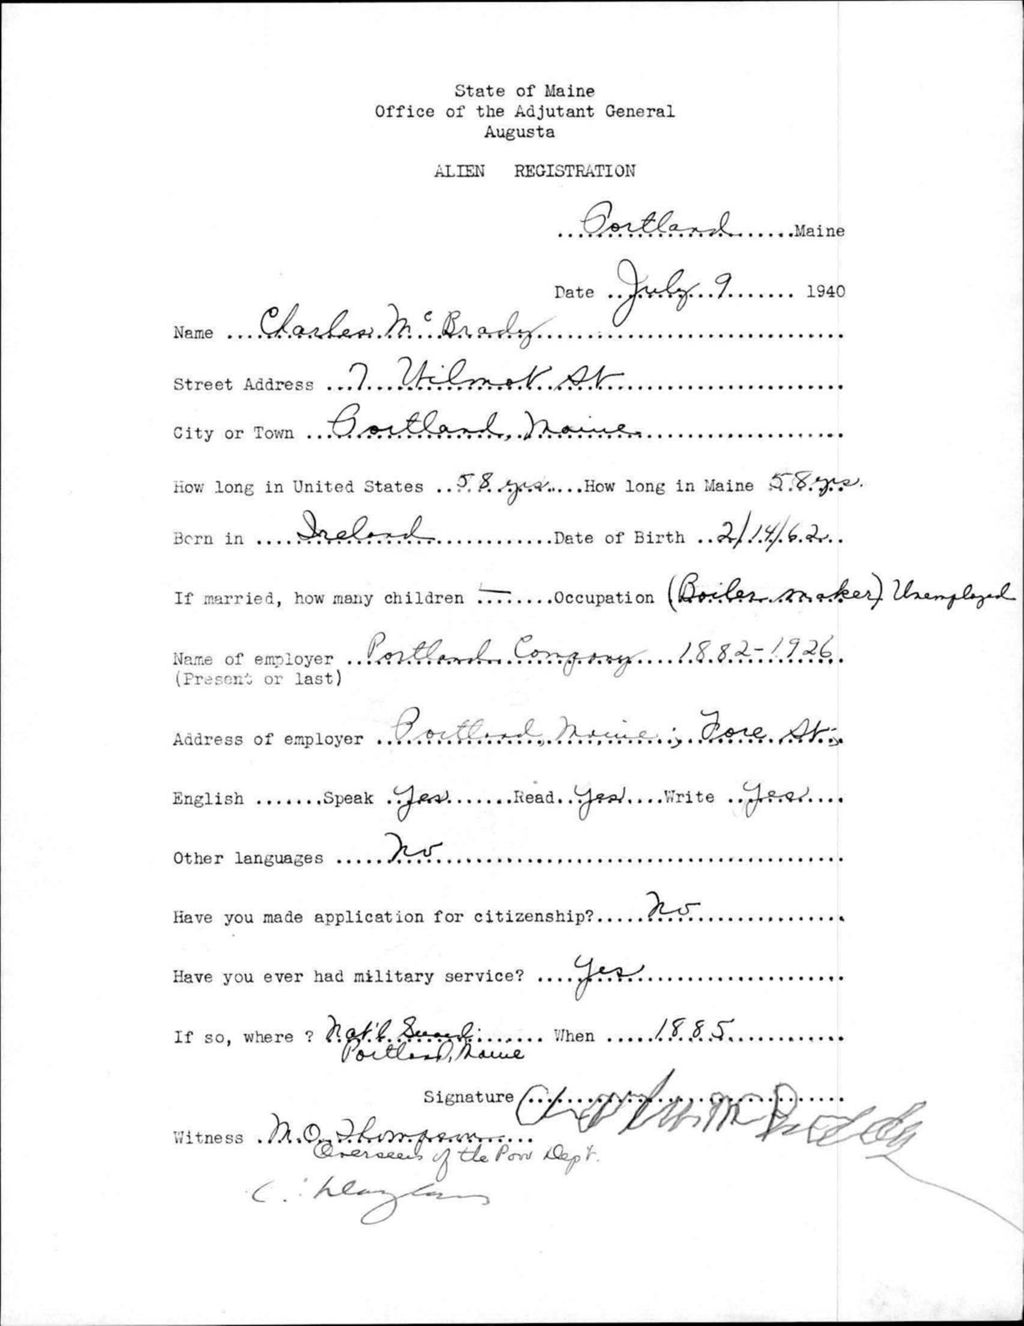 State of Maine
Office of the Adjutant General
Augusta
ALIEN REGISTRATION
Portland Maine
Date July 9 1940
Name Charles McBrady
Street Address 7 Wilmot St
City or Town Portland, Maine
How long in United States 58 yrs How long in Maine 58 yrs.
Born in Ireland Date of Birth 2/14/62
If married, how many children — Occupation (Boiler maker) Unemployed
Name of employer Portland Company 1882-1926
(Present or last)
Address of employer Portland, Maine; Fore St.
English Speak Yes Read Yes Write Yes
Other languages No
Have you made application for citizenship? No
Have you ever had military service? Yes
If so, where ? Nat'l Guard When 1885
Portland, Maine
Signature Charles McBrady
Witness M.O. Thompson
Overseers of the Poor Dept.
C.